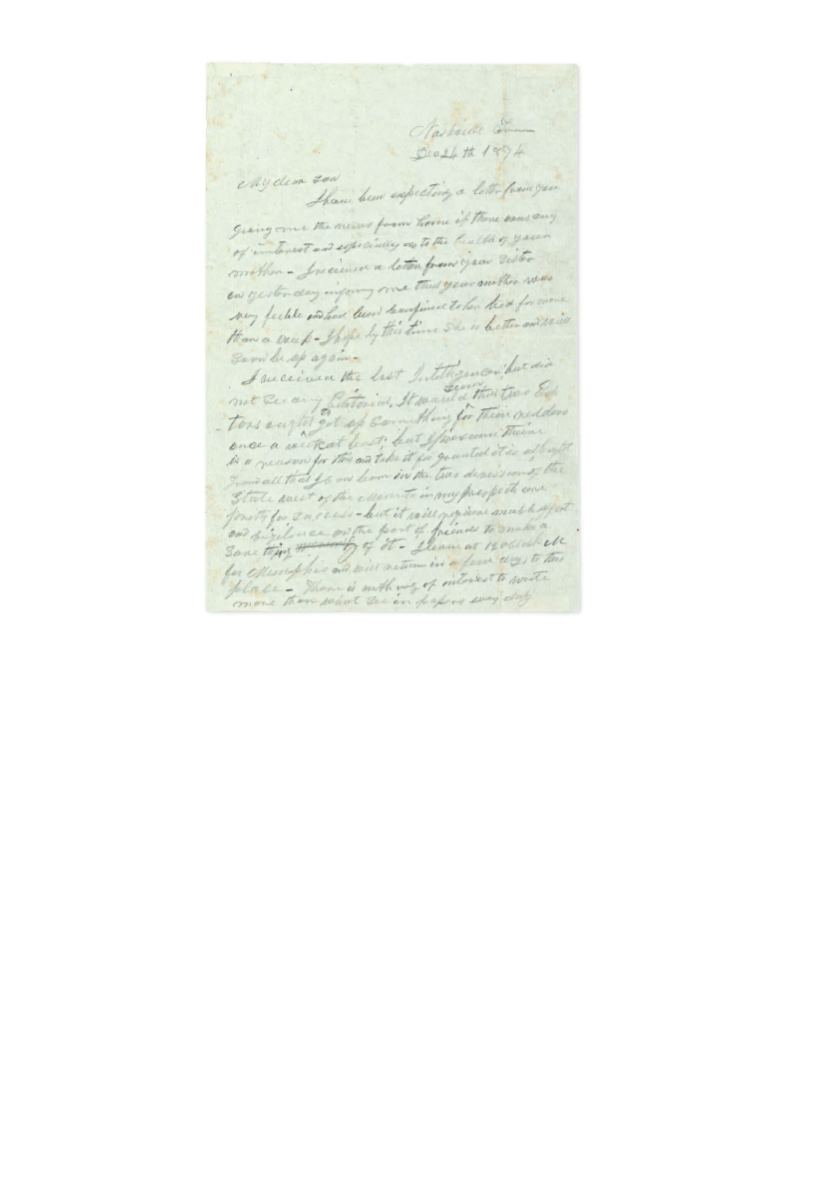 Nashville Tenn
Dec 24th 1874
My dear son
I have been expecting a letter from you
giving me the news from home if there was any
of interest and especially as to the health of your
mother - I received a letter from your sister
on yesterday informing me that your mother was
very feeble and has been confined to her bed for more
than a week - I hope by this time she is better and will
soon be up again -
I received the last Intelligencer but did
not see any Editorial. It would seem that two Edi
tors ought to get up something for their readers
once a week at least, but I presume there
is a reason for this and take it for granted it is all right
From all that I can learn in the two divisions of the
State west of the Mounts my prospects are
for success - but it will require much effort
and vigilance on the part of friends to make a
sure thing of it - I leave at
for Memphis and will return in a few days to this
place - There is nothing of interest to write
more than what see in papers every day